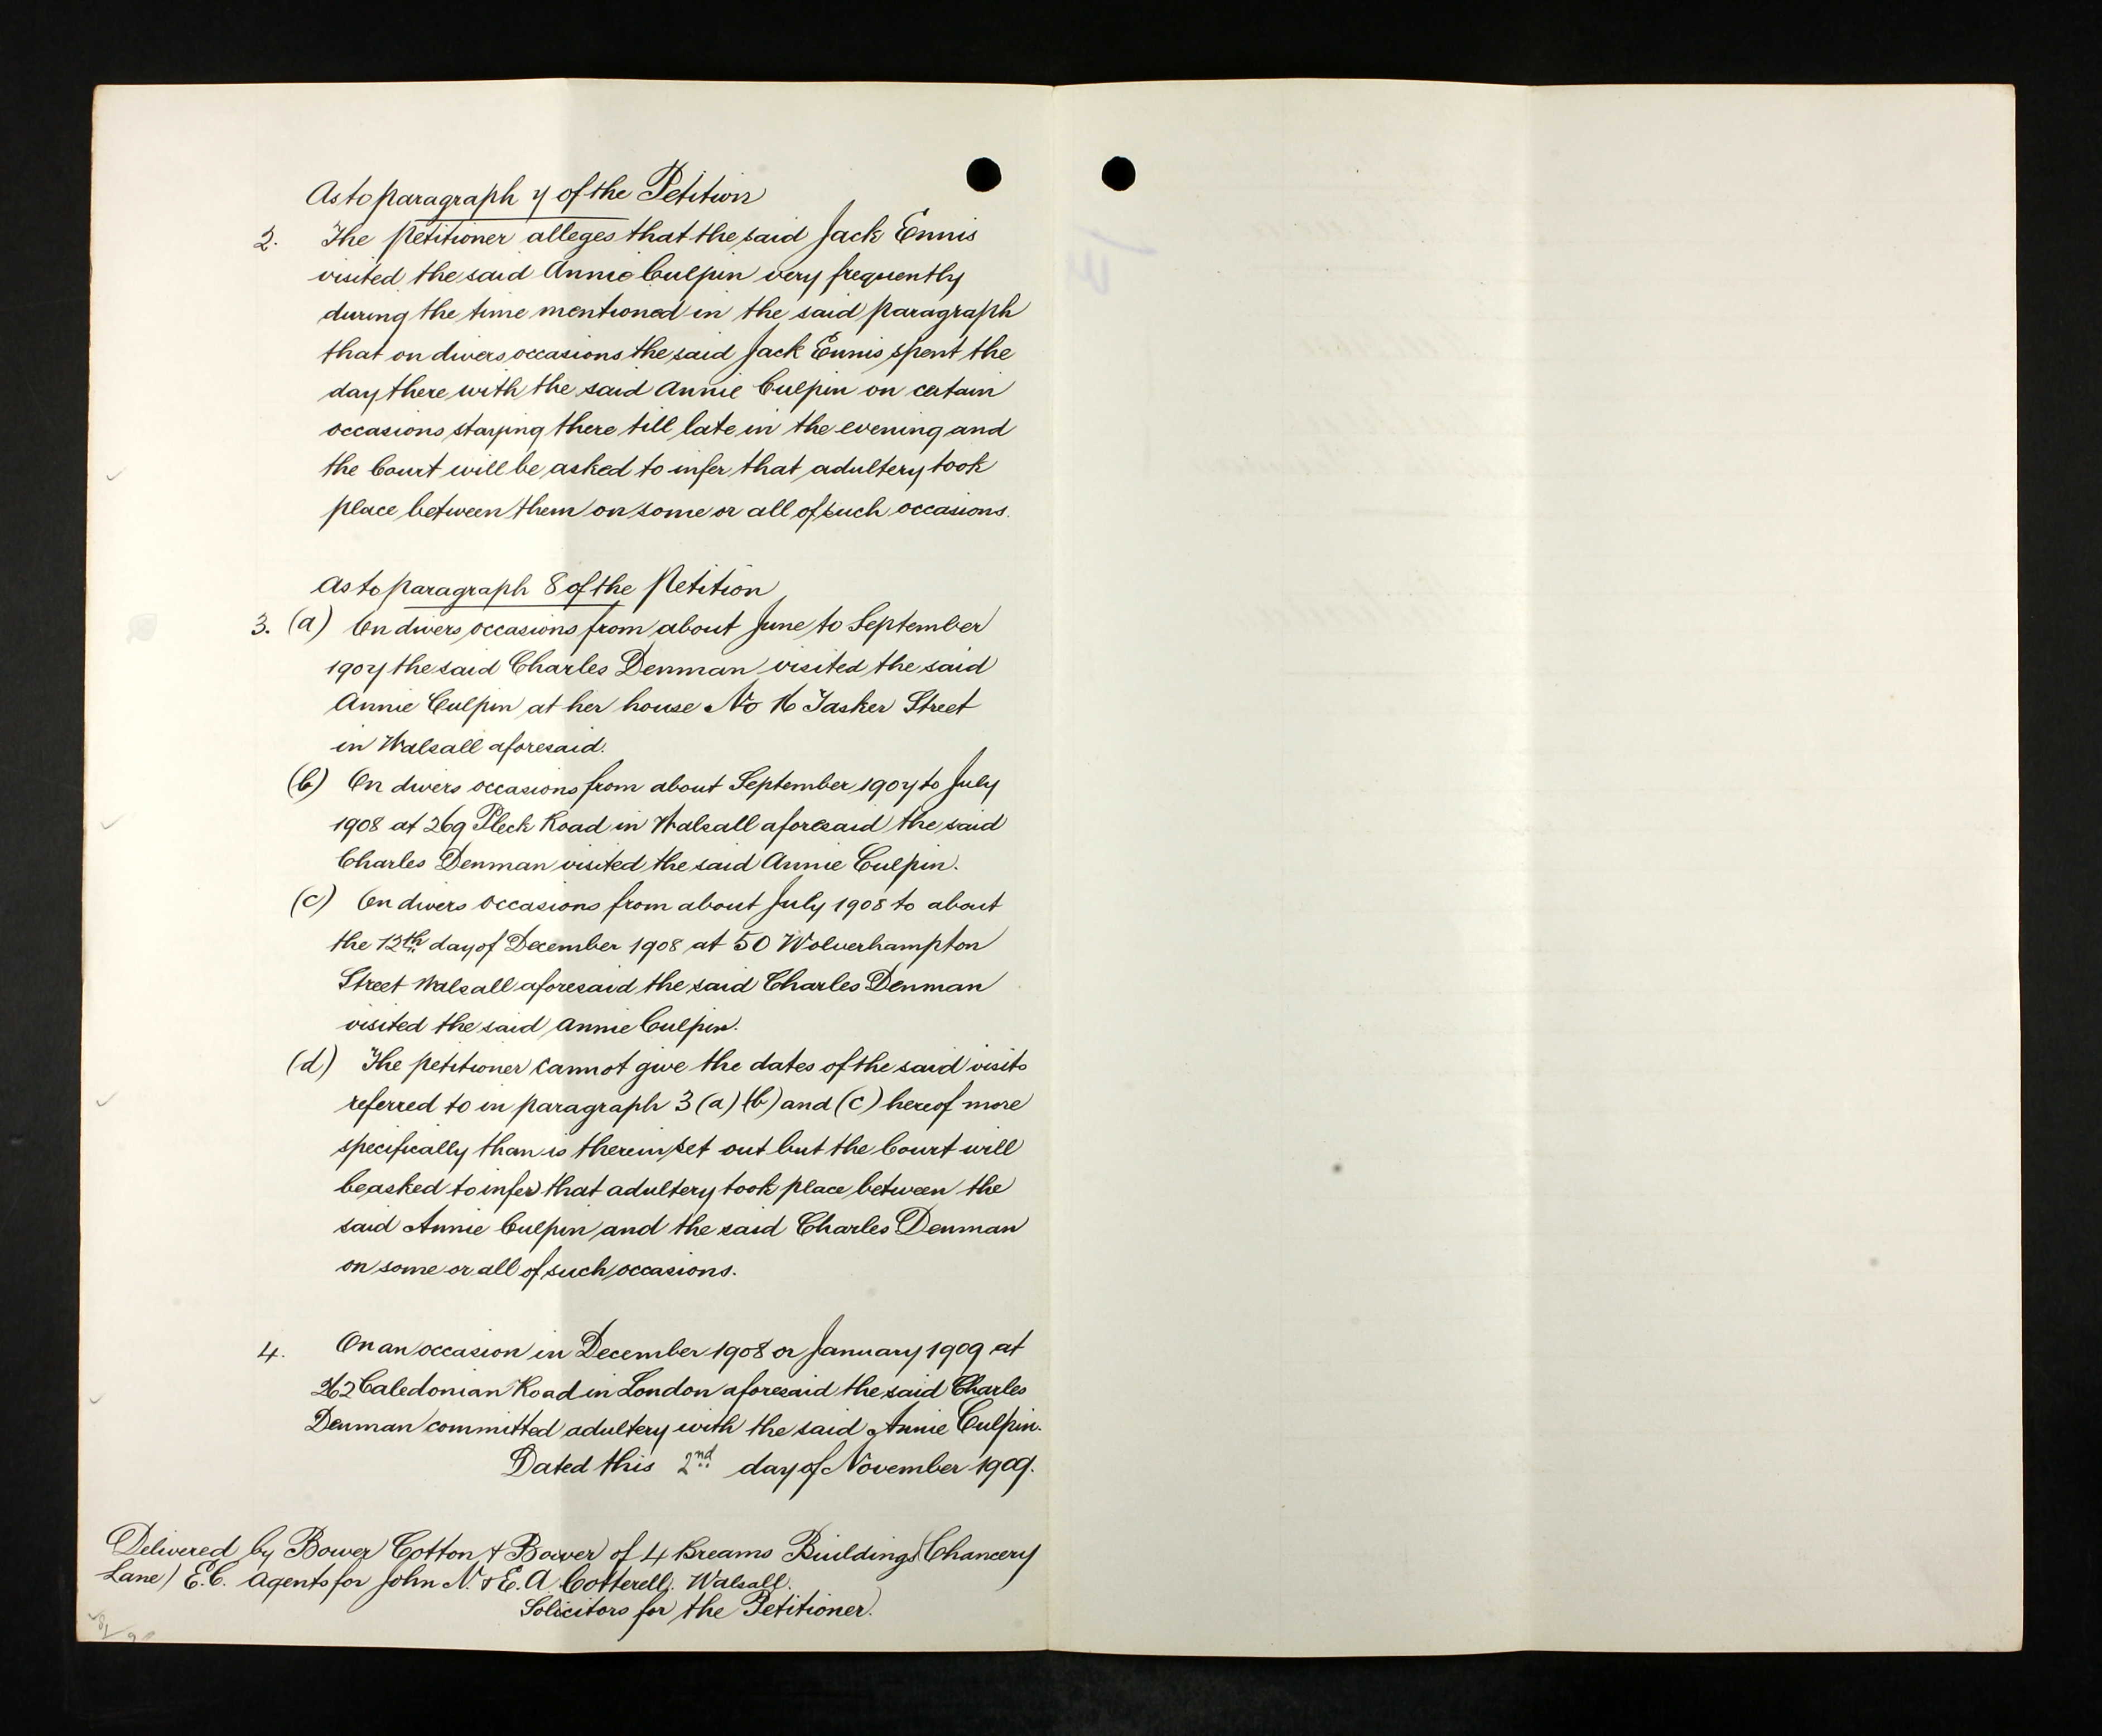 As to paragraph 7 of the Petition
2. The Petitioner alleges that the said Jack Ennis
visited the said Annie Culpin very frequently
during the time mentioned in the said paragraph
that on divers occasions the said Jack Ennis spent the
day there with the said Annie Culpin on certain
occasions staying there till late in the evening and
the Court will be asked to infer that adultery took
place between them on some or all of such occasions.
As to paragraph 8 of the Petition
3. (a) On divers occasions from about June to September
1907 the said Charles Denman visited the said
Annie Culpin at her house No 16 Tasker Street
in Walsall aforesaid.
(b) On divers occasions from about September 1907 to July
1908 at 269 Pleck Road in Walsall aforesaid the said
Charles Denman visited the said Annie Culpin.
(c) On divers occasions from about July 1908 to about
the 12th day of December 1908 at 50 Wolverhampton
Street Walsall aforesaid the said Charles Denman
visited the said Annie Culpin.
(d) The petitioner cannot give the dates of the said visits
referred to in paragraph 3 (a) (b) and (c) hereof more
specifically than is therein set out but the Court will
be asked to infer that adultery took place between the
said Annie Culpin and the said Charles Denman
on some or all of such occasions.
4. On an occasion in December 1908 or January 1909 at
262 Caledonian Road in London aforesaid the said Charles
Denman committed adultery with the said Annie Culpin.
Dated this 2nd day of November 1909.
Delivered by Bower Cotton & Bower of 4 Breams Buildings (Chancery
Lane) E.C. Agents for John N. & E. A. Cotterell. Walsall.
Solicitors for the Petitioner.